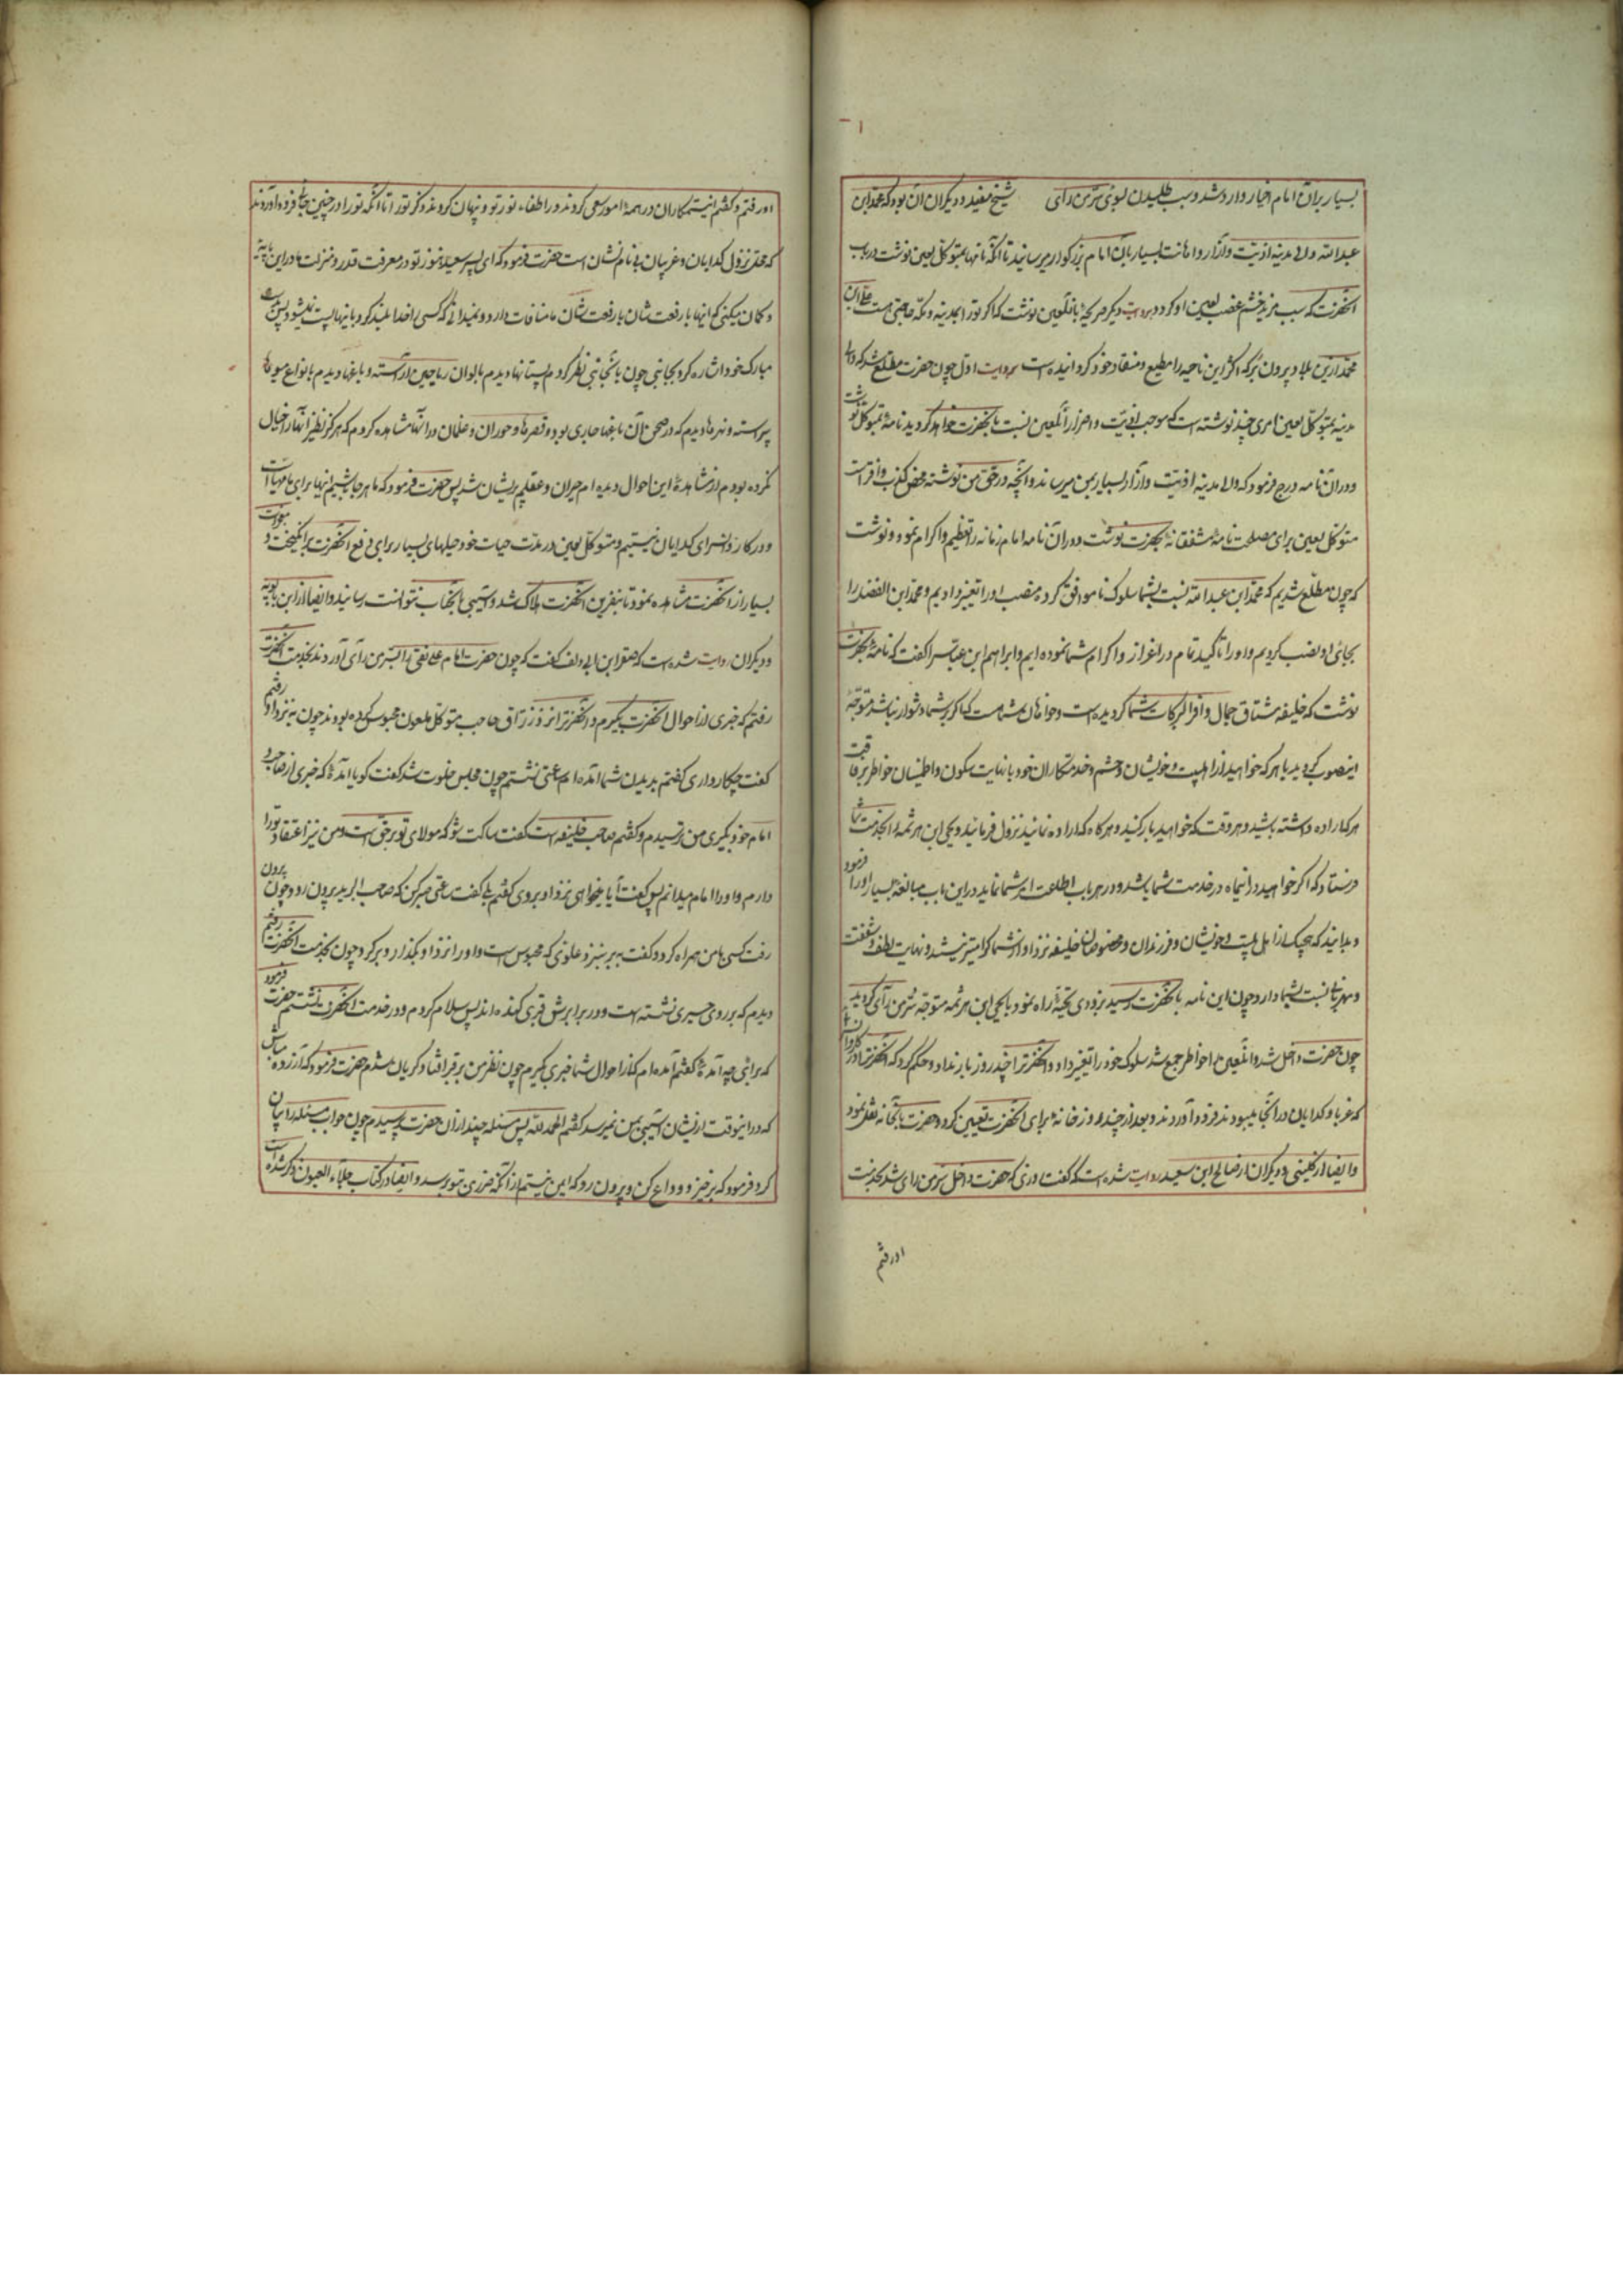 بسیار بران امام اخیار وارد شد و سبب طلبیدن بسوی سرّمن رای شیخ مفید و دیکران ان بود که محمد ابن
عبد الله والی مدینه اذیّت وآزار و اهانت بسیار بان امام بزرکوار میرسانید تا انکه نامها بمتوکل لعین نوشت در باب
انحضرت که سبب مزید خشم و غضب لعین او کردد و بروایت دیکر صریحهٔ بانلعین نوشت که اکر تو را بمدینه و مکّه حاجتی هست علی ابن
محمد را ازین بلاد بیرون بر که اکثر این ناحیه را مطیع و منقاد خود کردانیده است بروایت اول چون حضرت مطلع شد که والی
مدینه بمتوکل لعین امری چند نوشته است که موجب اذیّت و اضرار انلعین نسبت بانحضرت خواهد کردید نامهٔ بمتوکل نوشت
و دران نامه درج فرمود که والی مدینه اذیّت وازار بسیار بمن میرساند و انچه در حق من نوشته محض کذب و افترا است
متوکل لعین برای مصلحت نامهٔ مشفقانه بحضرت نوشت و دران نامه امام زمانه را تعظیم و اکرام نمود و نوشت
که چون مطلّع شدیم که محمد ابن عبد الله نسبت بشما سلوک ناموافق کرده منصب او را تغییر دادیم و محمد ابن الفضل را
بجای او نصب کردیم و او را تاکید تمام در اعزاز و اکرام شما نموده ایم و ابراهیم ابن عباس را کفت که نامهٔ بحضرت
نوشت که خلیفه مشتاق جمال وافر البرکات شما کردیده است و خواهان شماست که اکر بر شما دشوار نباشد متوجّه
اینصوب کردید با هر که خواهید از اهلبیت و خویشان و حشم و خدمتکاران خود با نهایت سکون و اطمینان خاطر برفاقت
هر که اراده داشته باشید و هر وقت که خواهید بار کنید و هرکاه که اراده نمائید نزول فرمائید و یحیی ابن هرثمه را بخدمت شما
فرستاد که اکر خواهید در این راه در خدمت شما باشد و در هر باب اطاعت امر شما نماید در این باب مبالغهٔ بسیار او را فرمود
و بدانید که هیچیک از اهل بیت و خویشان و فرزندان و مخصوصان خلیفه نزد او از شما کرامیتر نیستند و نهایت لطف و شفقت
و مهربانی نسبت بشما دارد و چون این نامه بانحضرت رسید بزودی تهیّهٔ راه نمود با یحیی ابن هرثمه متوجّه سرّمن رآی کردید
چون حضرت داخل شد و انلعین را خاطر جمع شد سلوک خود را تغییر داد و انحضرت را چند روز بار نداد و حکم کرد که انحضرت را در کاروانسرائی
که غربا و کدایان در انجا میبودند فرود آوردند و بعد از چند روز خانهٔ برای انحضرت تعیین کرد و حضرت بانخانه نقل نمود
و ایضا از کلینی و دیکران از صالح ابن سعید روایت شده است که کفت روزی که حضرت داخل سرّمن رای شد بخدمت
اورفتم
اورفتم و کفتم این ستمکاران در همهٔ امور سعی کردند در اطفاء نور تو و پنهان کردند ذکر تو را تا انکه تو را در چنین جائی فرود اوردند
که محل نزول کدایان و غریبان بی نام و نشان است حضرت فرمود که ای پسر سعید هنوز تو در معرفت قدر و منزلت ما در این پایهٔ
و کمان میکنی که اینها با رفعت شان ما منافات دارد و نمیدانی که کسی را خدا بلند کرد باینها پست نمیشود پس بدست
مبارک خود اشاره کرد بجانبی چون بانجانب نظر کردم بستانها دیدم بالوان ریاحین آراسته و باغها دیدم بانواع میوه‌ها
پیراسته و نهرها دیدم که در صحن آن باغها جاری بود و قصرها و حوران و غلمان در انها مشاهده کردم که هرکز نظیر انها را خیال
نکرده بودم از مشاهدهٔ این احوال دیده ام حیران و عقلم پریشان شد پس حضرت فرمود که ما هر جا باشیم اینها برای ما مهیاست
و در کاروانسرای کدایان نیستیم و متوکل لعین در مدّت حیات خود حیلهای بسیار برای دفع انحضرت بر انکیخت و معجزات
بسیار از انحضرت مشاهده نمود تا بنفرین انحضرت هلاک شد و آسیبی بانجناب نتوانست رسانید و ایضا از ابن بابویه
و دیکران روایت شده است که صقر ابن ابی دلف کفت که چون حضرت امام علی نقی را بسرّمن رآی آوردند بخدمت انحضرت
رفتم که خبری از احوال انحضرت بکیرم و انحضرت را نزد زراقی حاجب متوکل ملعون محبوس کرده بودند چون به نزد او رفتم
کفت چکار داری کفتم بدیدن شما آمده ام ساعتی نشستم چون مجلس خلوت شد کفت کویا آمدهٔ که خبری از صاحب و
امام خود بکیری من ترسیدم و کفتم صاحب خلیفه است کفت ساکت شو که مولای تو بر حق است و من نیز اعتقاد تو را
دارم و او را امام میدانم پس کفت آیا میخواهی نزد او بروی کفتم بلی کفت ساعتی صبر کن که صاحب البرید بیرون رود و چون بیرون
رفت کسی با من همراه کرد و کفت ببر بنزد علوی که محبوس است و او را نزد او بکذار و برکرد چون بخدمت انحضرت رفتم
دیدم که بر روی حصیری نشسته است و در برابرش قبری کنده اند پس سلام کردم و در خدمت انحضرت نشستم حضرت فرمود
که برای چه آمدهٔ کفتم آمده ام که از احوال شما خبری بکیرم چون نظر من بر قبر افتاد کریان شدم حضرت فرمود که آزرده مباش
که در اینوقت از ایشان آسیبی بمن نمیرسد کفتم الحمد لله پس مسئله چند از ان حضرت پرسیدم چون جواب مسئله را بیان
کرد فرمود که برخیز و وداع کن و بیرون رو که ایمن نیستم از انکه ضرری بتو برسد و ایضا در کتاب جلآء العیون ذکر شده است